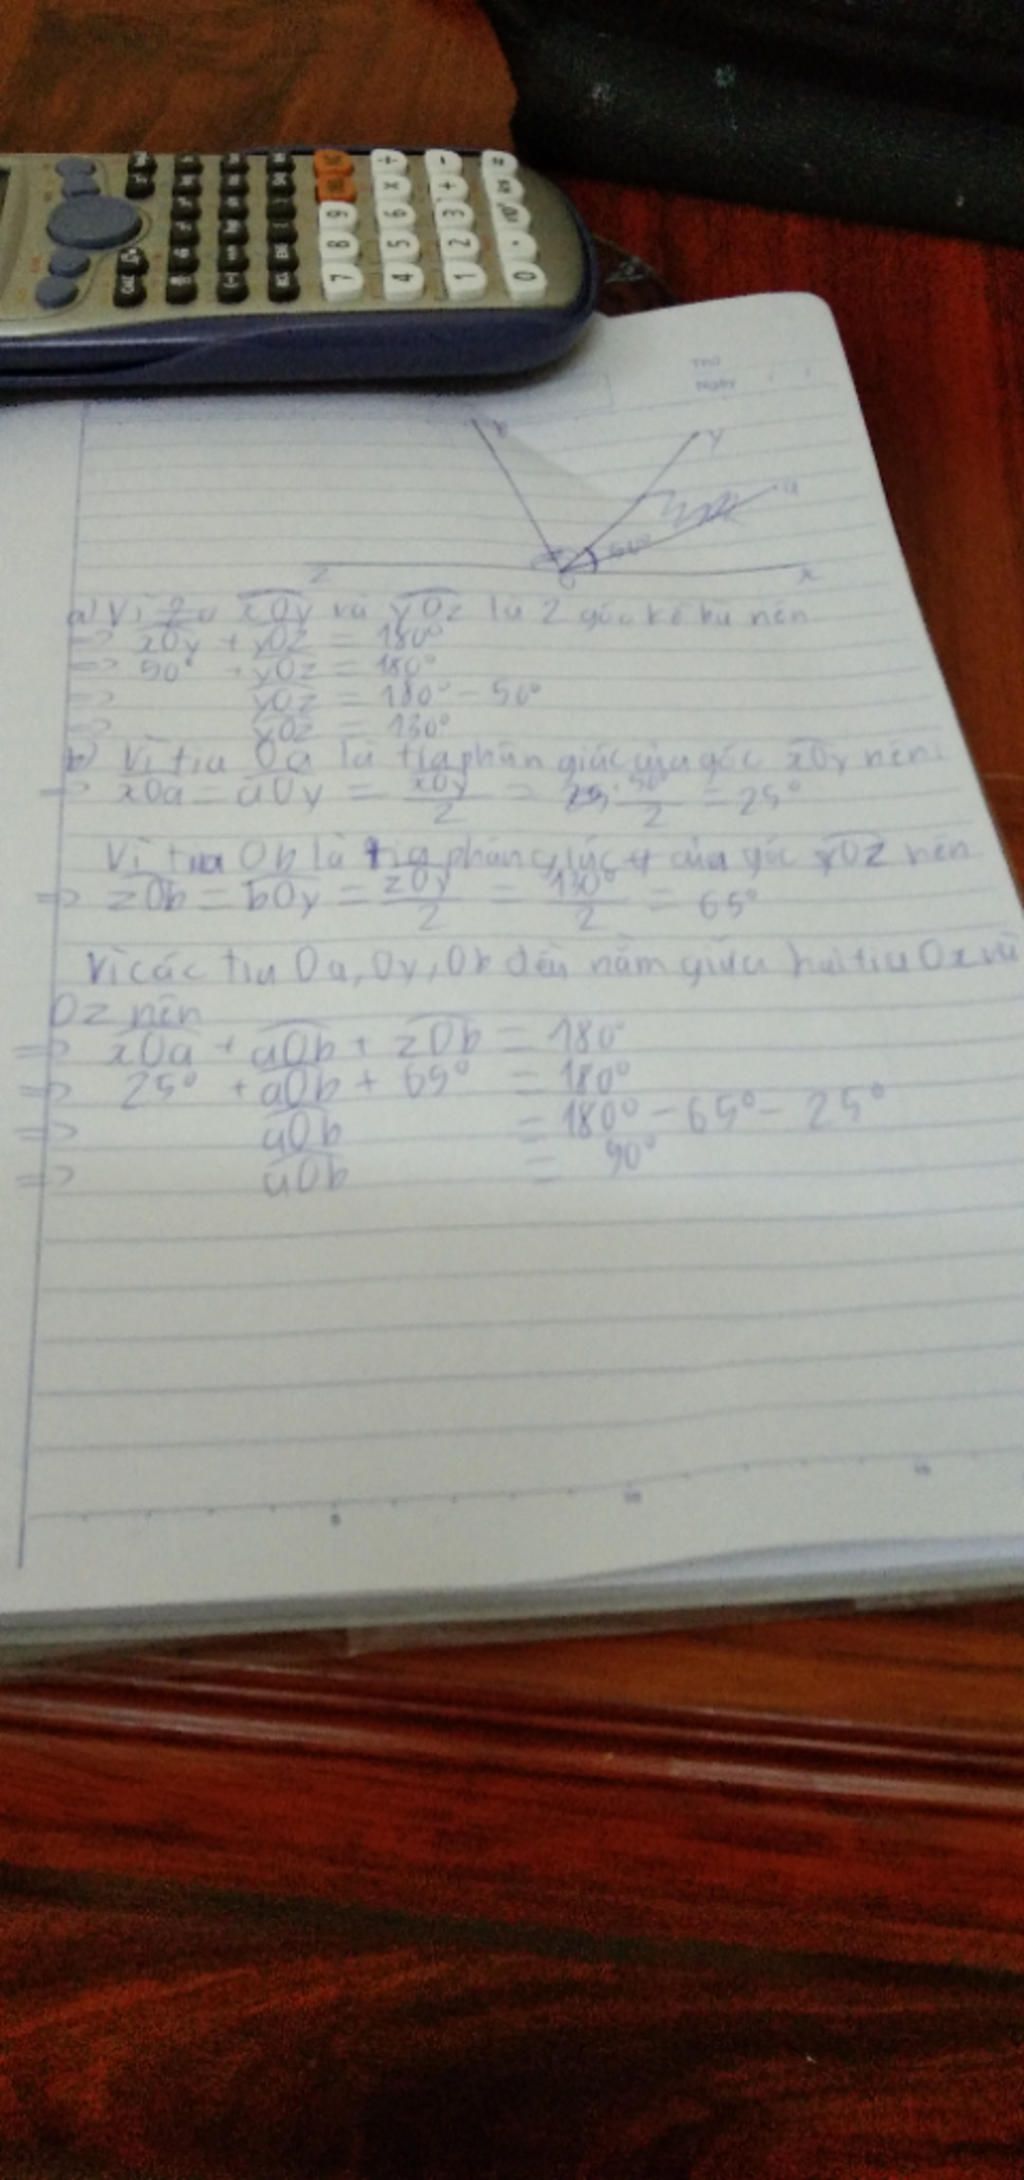 7 8 9
4 5 6 × ÷
1 2 3 + -
0 .
Thứ
Ngày
b
y
a
50°
z
O
x
a) Vì xOy và yOz là 2 góc kề bù nên
=> xOy + yOz = 180°
=> 50° + yOz = 180°
=> yOz = 180° - 50°
=> yOz = 130°
b) Vì tia Oa là tia phân giác của góc xOy nên:
=> xOa = aOy = xOy/2 = 50°/2 = 25°
Vì tia Ob là tia phân giác của góc yOz nên
=> zOb = bOy = zOy/2 = 130°/2 = 65°
Vì các tia Oa, Oy, Ob đều nằm giữa hai tia Ox và
Oz nên
=> xOa + aOb + zOb = 180°
=> 25° + aOb + 65° = 180°
=> aOb = 180° - 65° - 25°
=> aOb = 90°
5 10 15